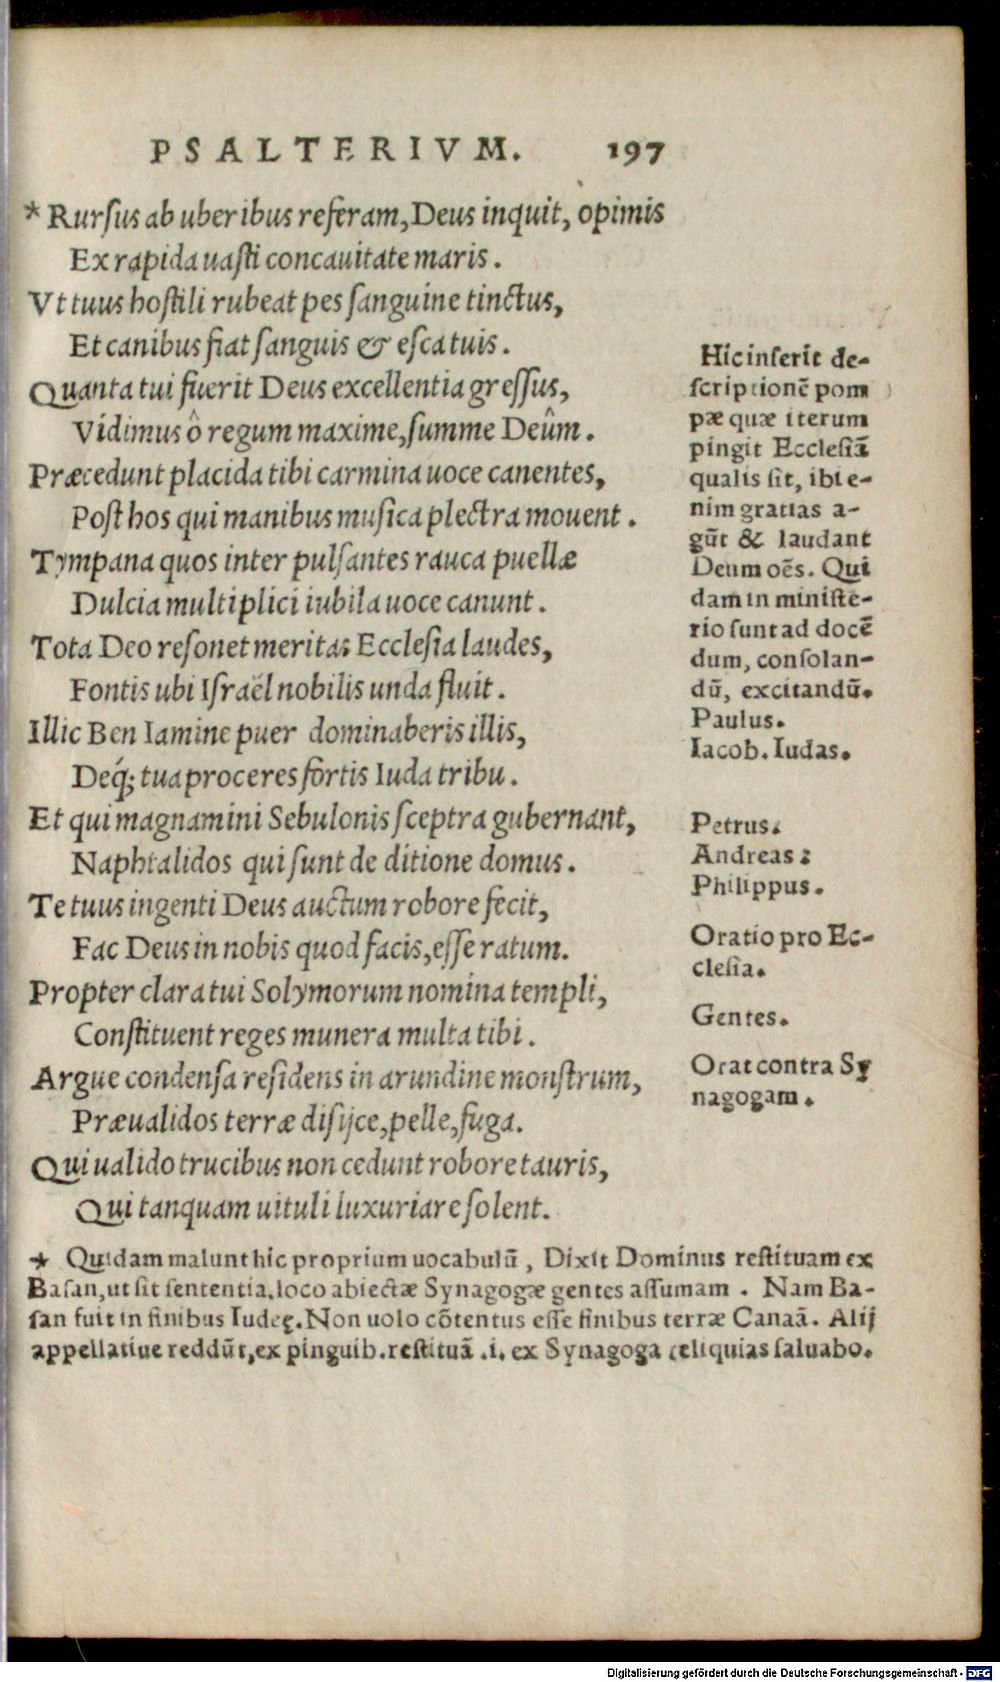 PSALTERIVM. 197
* Rursus ab uberibus referam, Deus inquit, opimis
Ex rapida uasti concauitate maris.
Vt tuus hostili rubeat pes sanguine tinctus,
Et canibus fiat sanguis & esca tuis.
Quanta tui fuerit Deus excellentia gressus,
Vidimus ô regum maxime, summe Deûm.
Præcedunt placida tibi carmina uoce canentes,
Post hos qui manibus musica plectra mouent.
Tympana quos inter pulsantes rauca puellæ
Dulcia multiplici iubila uoce canunt.
Tota Deo resonet meritas Ecclesia laudes,
Fontis ubi Israël nobilis unda fluit.
Illic Ben Iamine puer dominaberis illis,
Deq́; tua proceres fortis Iuda tribu.
Et qui magnamini Sebulonis sceptra gubernant,
Naphtalidos qui sunt de ditione domus.
Te tuus ingenti Deus auctum robore fecit,
Fac Deus in nobis quod facis, esse ratum.
Propter clara tui Solymorum nomina templi,
Constituent reges munera multa tibi.
Argue condensa residens in arundine monstrum,
Præualidos terræ disijce, pelle, fuga.
Qui ualido trucibus non cedunt robore tauris,
Qui tanquam uituli luxuriare solent.
Hic inserit de-
scriptionē pom
pæ quæ iterum
pingit Ecclesiā
qualis sit, ibi e-
nim gratias a-
gūt & laudant
Deum oēs. Qui
dam in ministe-
rio sunt ad docē
dum, consolan-
dū, excitandū.
Paulus.
Iacob. Iudas.
Petrus.
Andreas:
Philippus.
Oratio pro Ec-
clesia.
Gentes.
Orat contra Sy
nagogam.
* Quidam malunt hic proprium uocabulū, Dixit Dominus restituam ex
Basan, ut sit sententia, loco abiectæ Synagogæ gentes assumam. Nam Ba-
san fuit in finibus Iudeę. Non uolo cōtentus esse finibus terræ Canaā. Alij
appellatiue reddūt, ex pinguib. restituā .i. ex Synagoga reliquias saluabo.
Digitalisierung gefördert durch die Deutsche Forschungsgemeinschaft - DFG